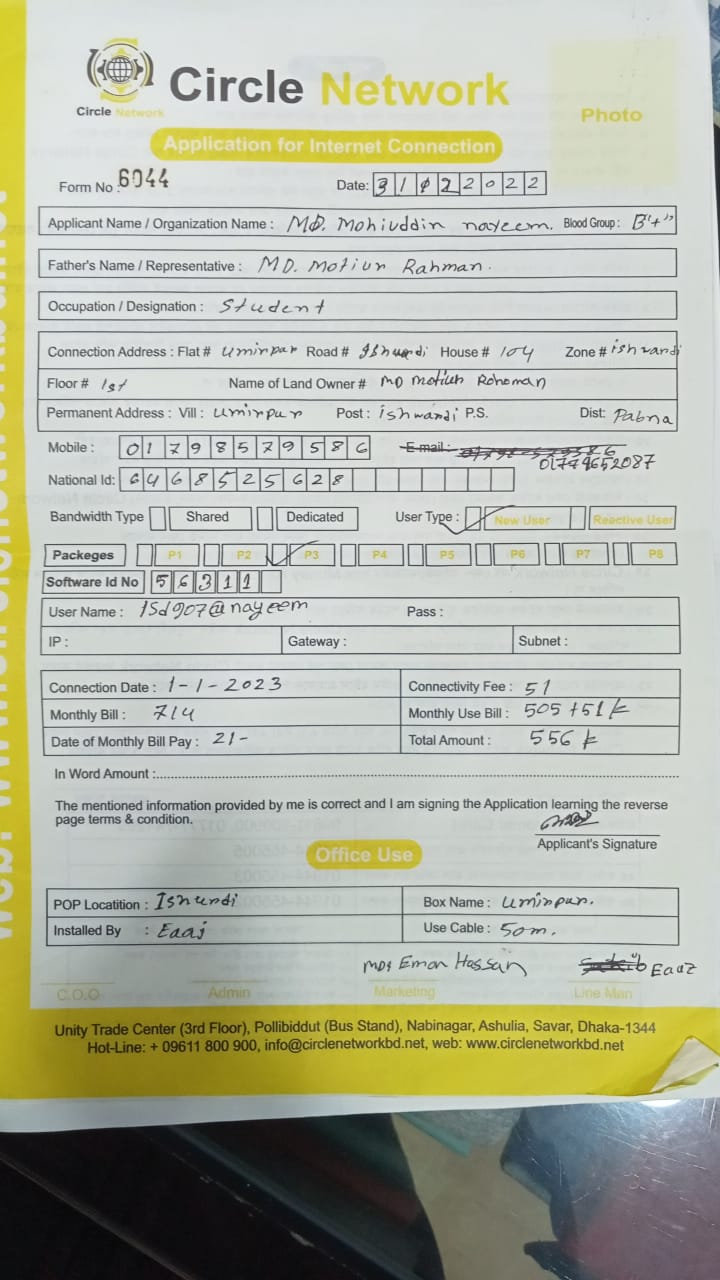 Circle Network
Circle Network
Photo
Application for Internet Connection
Form No : 6044 Date: 31 12 2022
Applicant Name / Organization Name : MD. Mohiuddin nayeem. Blood Group : B"+"
Father's Name / Representative : MD. Motiur Rahman.
Occupation / Designation : Student
Connection Address : Flat # uminpar Road # House # 104 Zone # ishwardi
Floor # 1st Name of Land Owner # MD Motiur Rohoman
Permanent Address : Vill : uminpur Post : ishwardi P.S. Dist: Pabna
Mobile : 01798579586 E-mail :
01774652087
National Id: 6468525628
Bandwidth Type Shared Dedicated User Type : New User Reactive User
Packeges P1 P2 P3 P4 P5 P6 P7 P8
Software Id No 56311
User Name : ISd907@nayeem Pass :
IP : Gateway : Subnet :
Connection Date : 1-1-2023 Connectivity Fee : 51
Monthly Bill : 714 Monthly Use Bill : 505 +51
Date of Monthly Bill Pay : 21- Total Amount : 556
In Word Amount :
The mentioned information provided by me is correct and I am signing the Application learning the reverse
page terms & condition.
Applicant's Signature
Office Use
POP Locatition : Ishurdi Box Name : uminpur.
Installed By : Eaaj Use Cable : 50m.
MDs Emon Hassain Eaaz
C.O.O Admin Marketing Line Man
Unity Trade Center (3rd Floor), Pollibiddut (Bus Stand), Nabinagar, Ashulia, Savar, Dhaka-1344
Hot-Line: + 09611 800 900, info@circlenetworkbd.net, web: www.circlenetworkbd.net